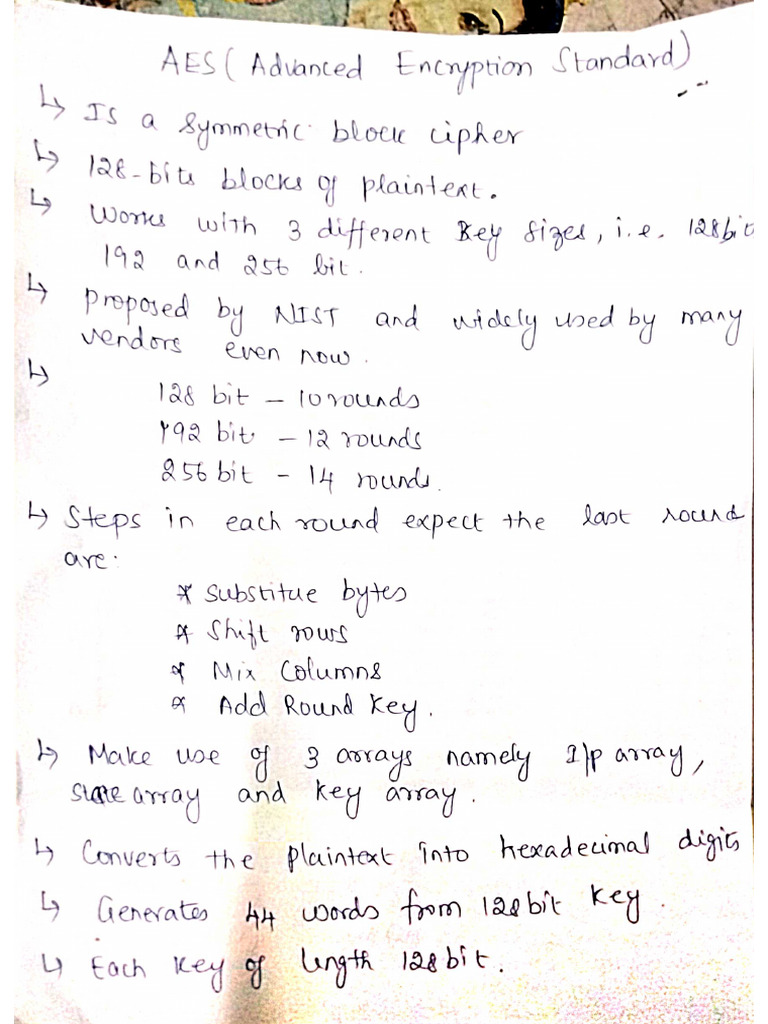 AES ( Advanced Encryption Standard)
↳ Is a symmetric block cipher
↳ 128-bits blocks of plaintext.
↳ Works with 3 different Key sizes, i.e. 128bit
192 and 256 bit.
↳ proposed by NIST and widely used by many
vendors even now.
↳ 128 bit – 10 rounds
192 bit – 12 rounds
256 bit – 14 rounds.
↳ Steps in each round expect the last round
are:
* Substitue bytes
* Shift rows
* Mix Columns
* Add Round Key.
↳ Make use of 3 arrays namely I/p array,
state array and key array.
↳ Converts the plaintext into hexadecimal digits
↳ Generates 44 words from 128bit key.
↳ Each key of length 128 bit.